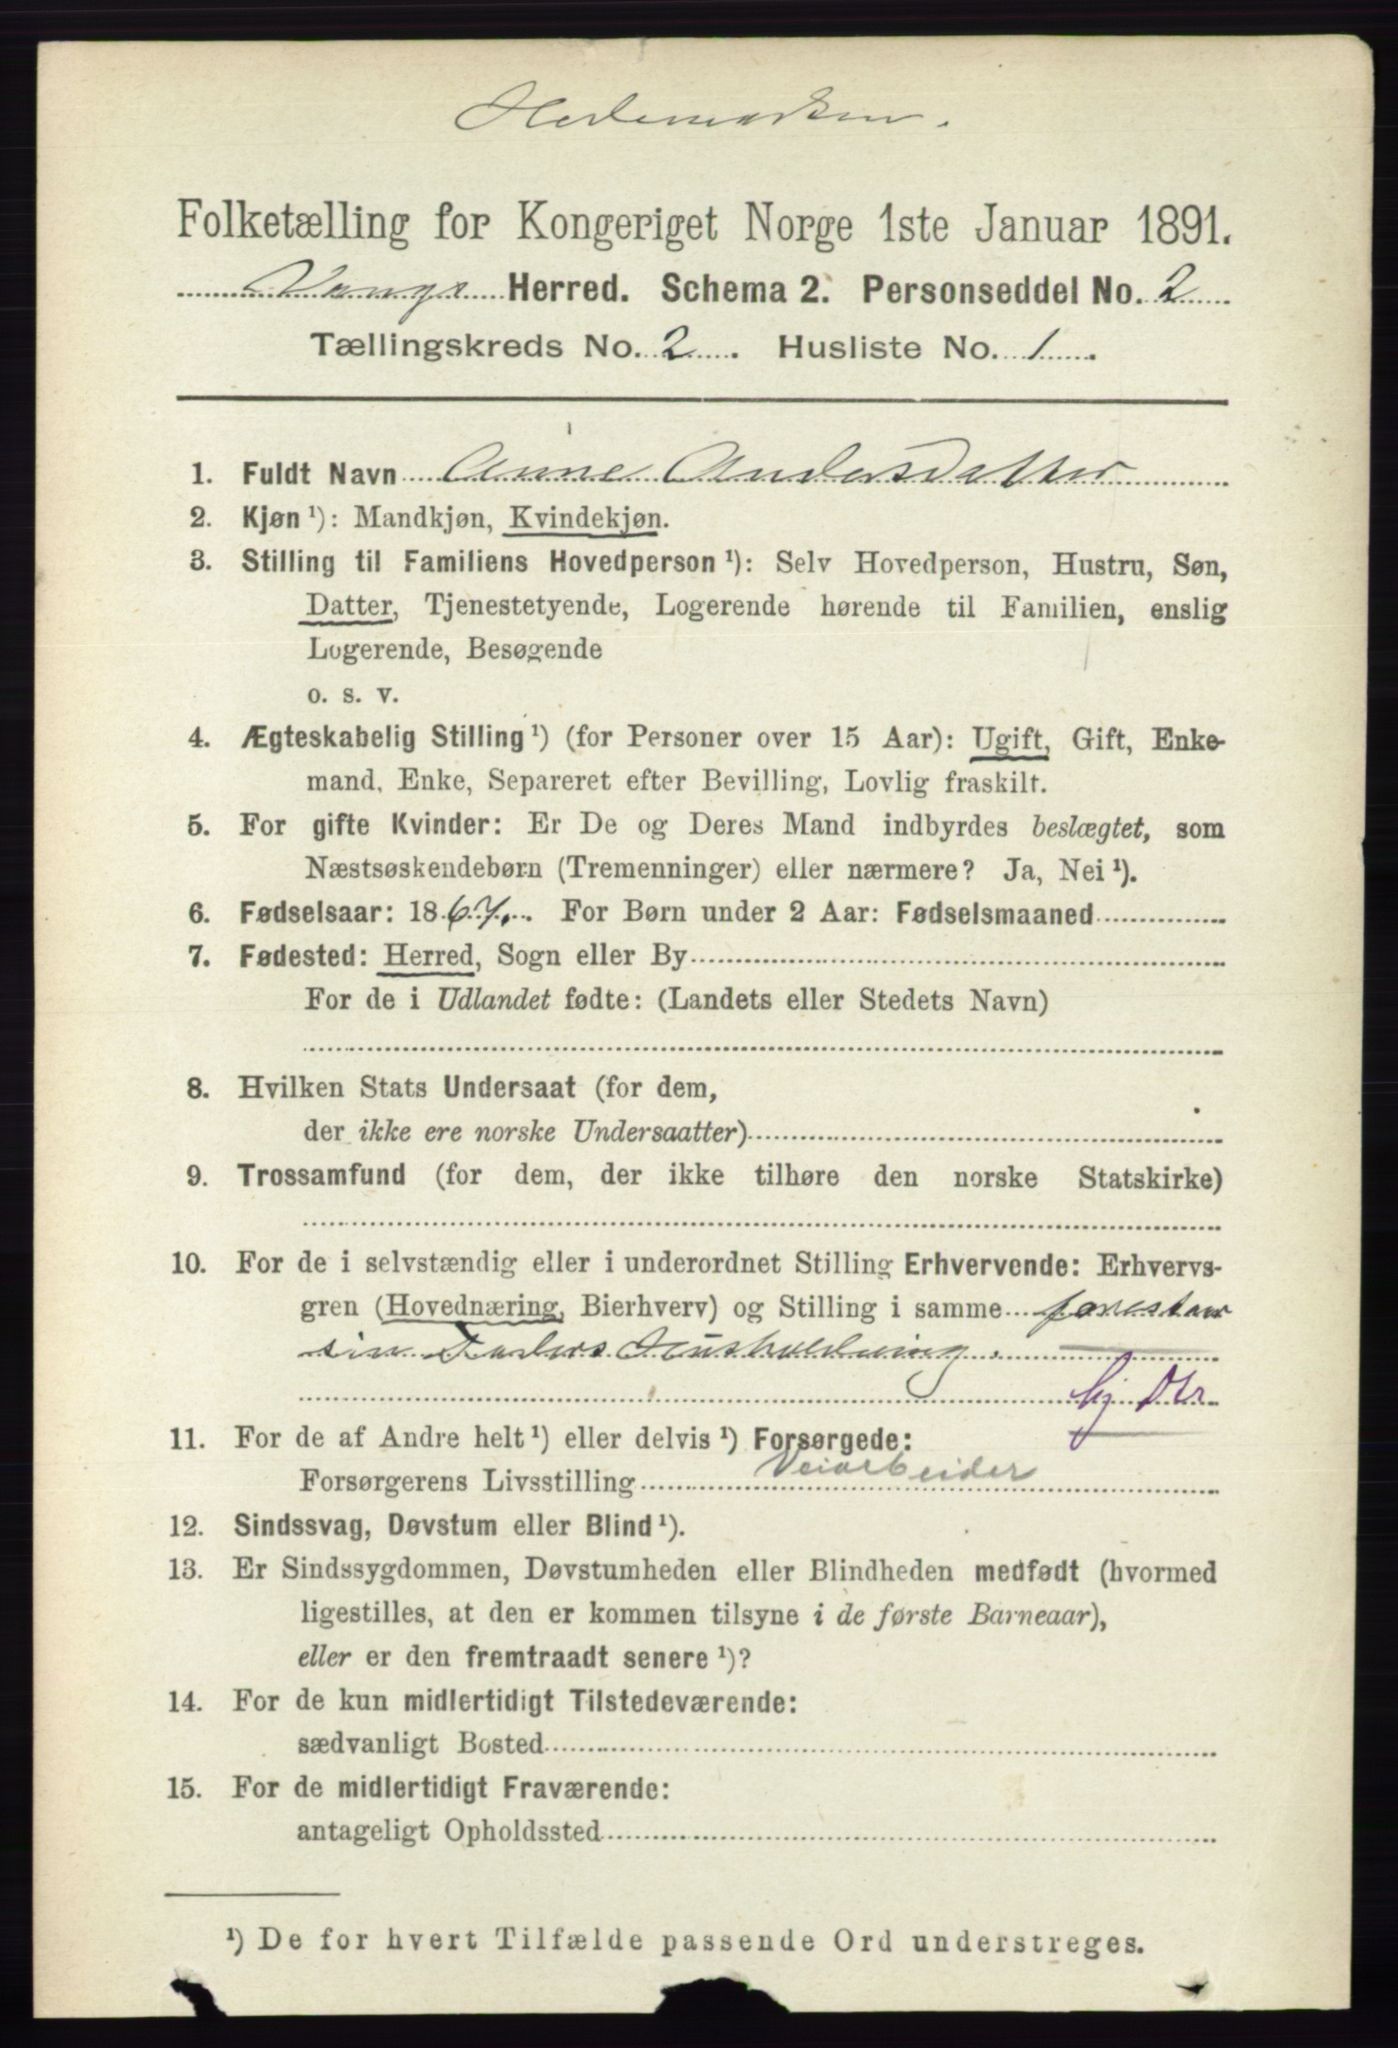 Hedemarken.
Folketælling for Kongeriget Norge 1ste Januar 1891.
Vangs Herred. Schema 2. Personseddel No. 2
Tællingskreds No. 2. Husliste No. 1.
1. Fuldt Navn Anne Andersdatter
2. Kjøn ¹): Mandkjøn, Kvindekjøn.
3. Stilling til Familiens Hovedperson ¹): Selv Hovedperson, Hustru, Søn,
Datter, Tjenestetyende, Logerende hørende til Familien, enslig
Logerende, Besøgende
o. s. v.
4. Ægteskabelig Stilling ¹) (for Personer over 15 Aar): Ugift, Gift, Enke-
mand, Enke, Separeret efter Bevilling, Lovlig fraskilt.
5. For gifte Kvinder: Er De og Deres Mand indbyrdes beslægtet, som
Næstsøskendebørn (Tremenninger) eller nærmere? Ja, Nei ¹).
6. Fødselsaar: 1867. For Børn under 2 Aar: Fødselsmaaned
7. Fødested: Herred, Sogn eller By
For de i Udlandet fødte: (Landets eller Stedets Navn)
8. Hvilken Stats Undersaat (for dem,
der ikke ere norske Undersaatter)
9. Trossamfund (for dem, der ikke tilhøre den norske Statskirke)
10. For de i selvstændig eller i underordnet Stilling Erhvervende: Erhvervs-
gren (Hovednæring, Bierhverv) og Stilling i samme forestaar
sin Faders Husholdning.
hj. Dtr
11. For de af Andre helt ¹) eller delvis ¹) Forsørgede:
Forsørgerens Livsstilling Veiarbeider
12. Sindssvag, Døvstum eller Blind ¹).
13. Er Sindssygdommen, Døvstumheden eller Blindheden medfødt (hvormed
ligestilles, at den er kommen tilsyne i de første Barneaar),
eller er den fremtraadt senere ¹)?
14. For de kun midlertidigt Tilstedeværende:
sædvanligt Bosted
15. For de midlertidigt Fraværende:
antageligt Opholdssted
¹) De for hvert Tilfælde passende Ord understreges.